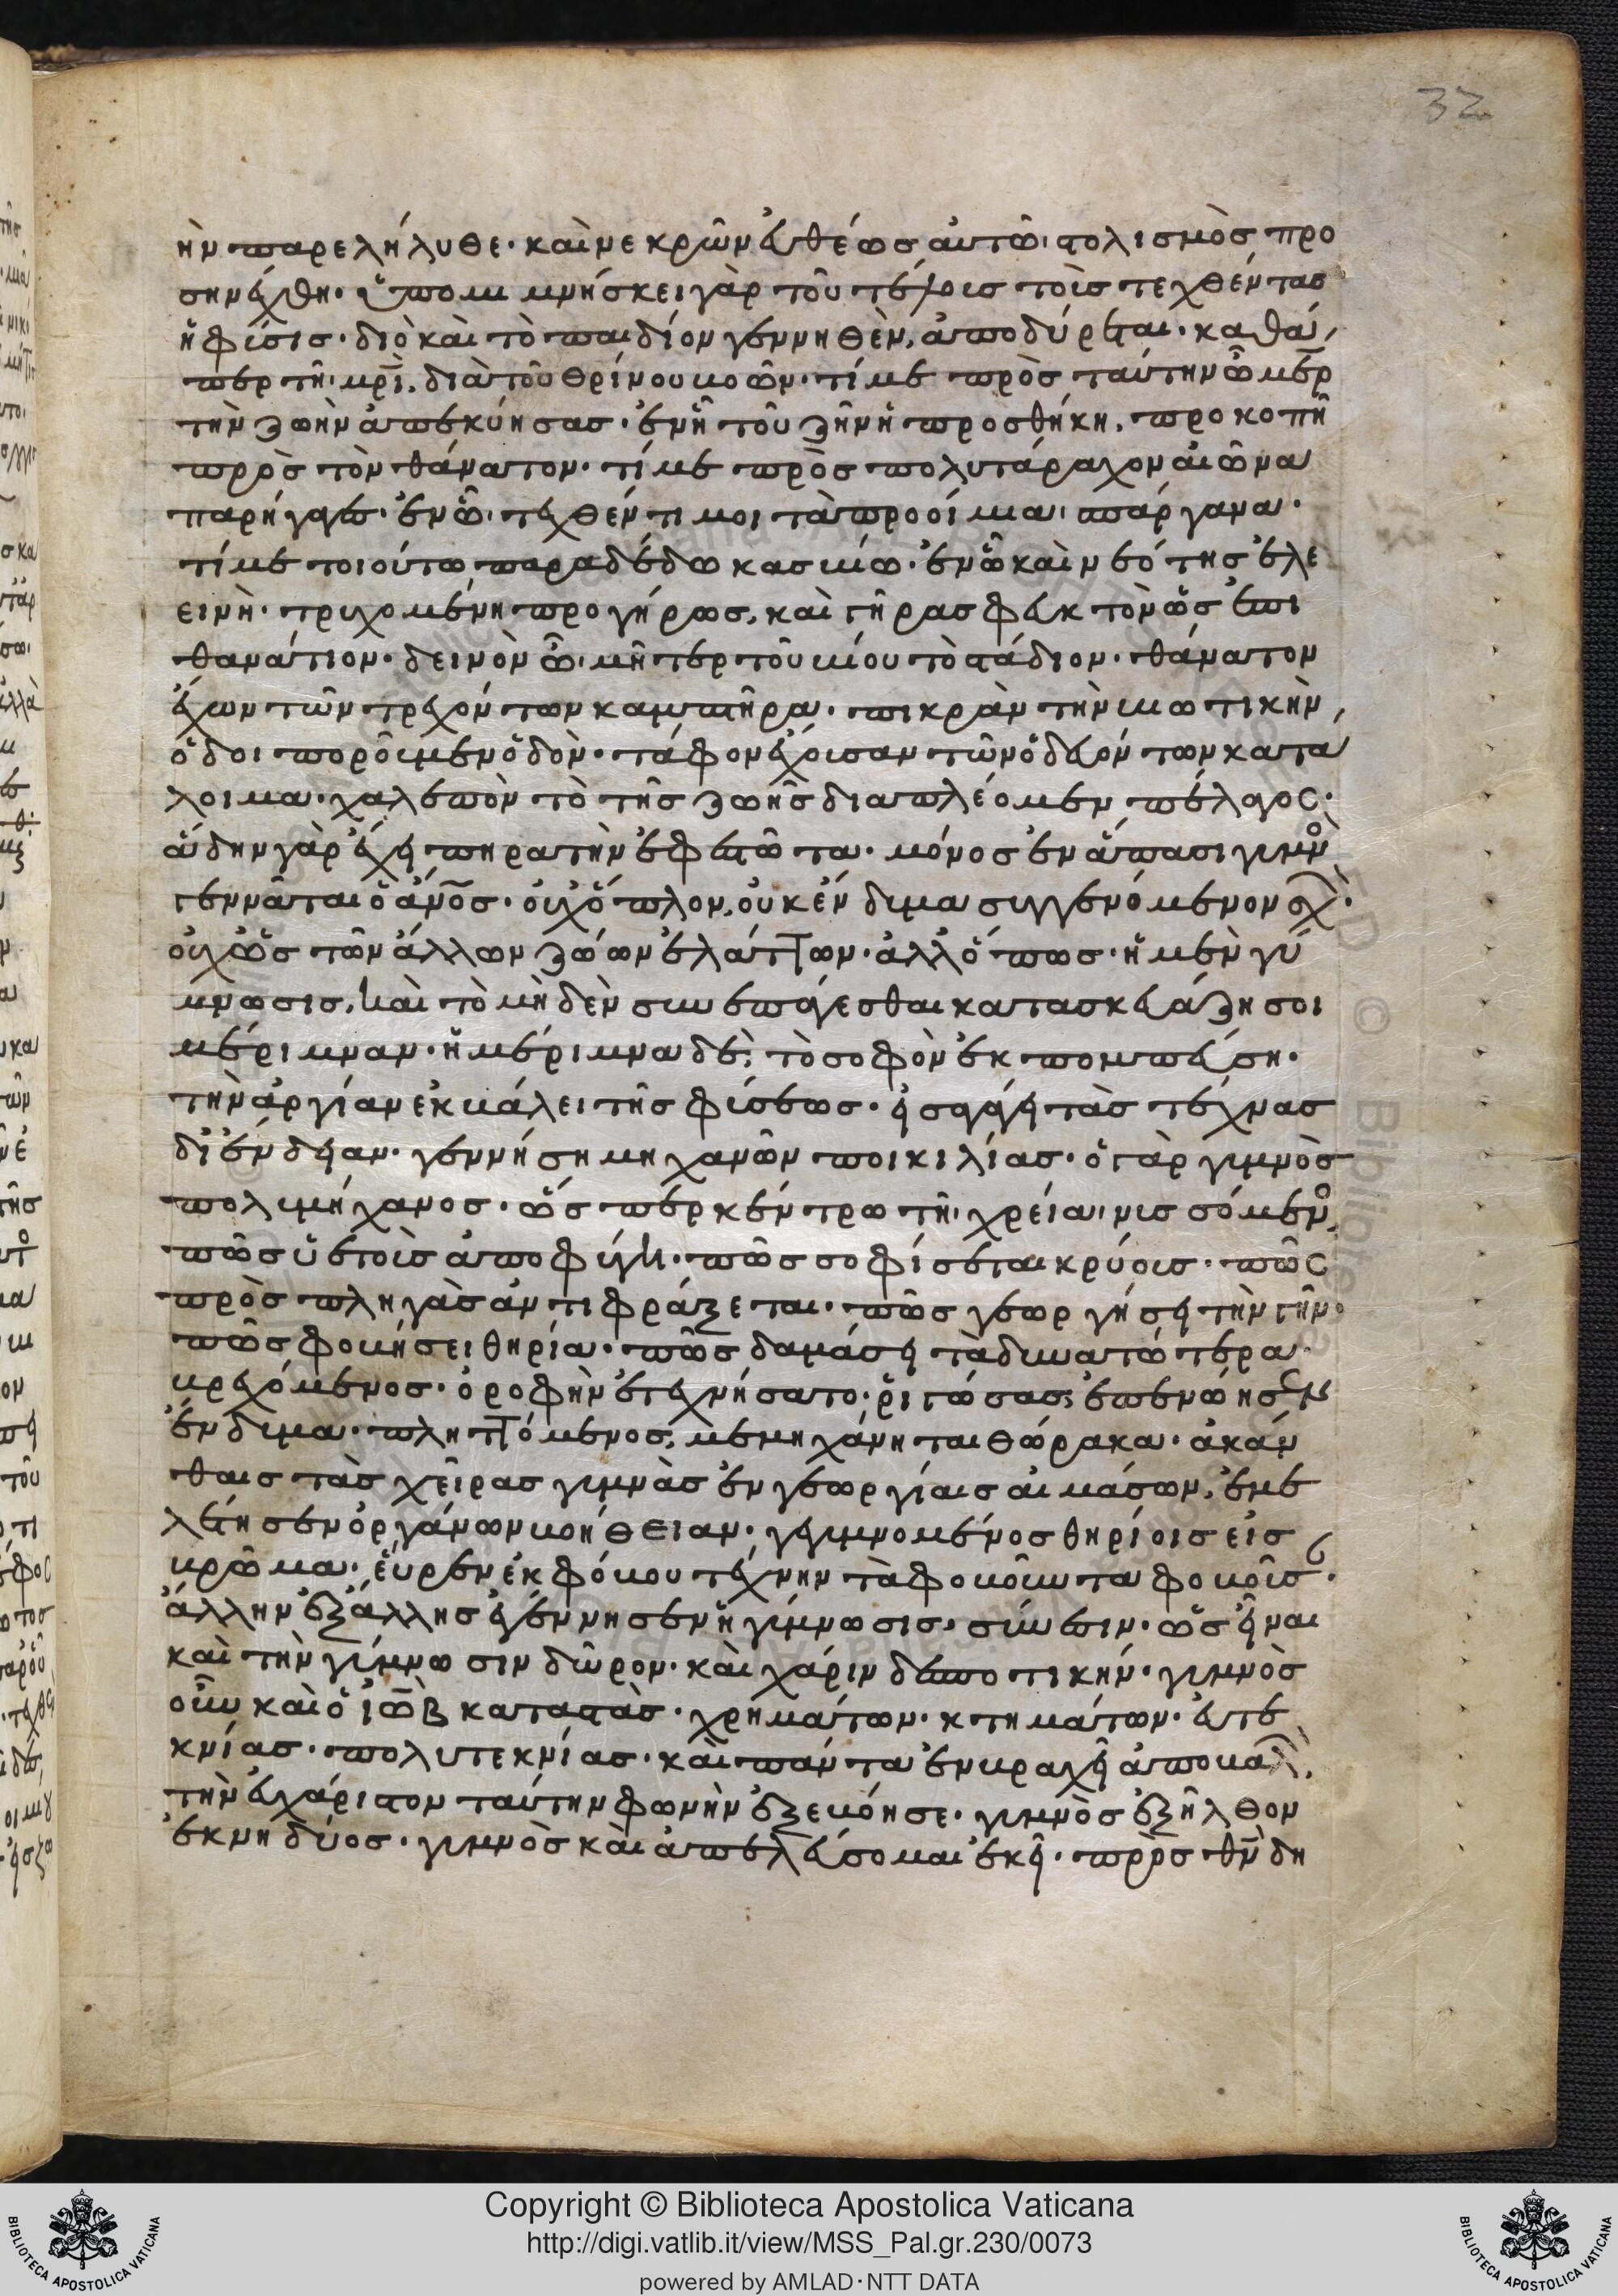 32
ἢν παρελήλυθε· καὶ νεκρῶν εὐθέως αὐτῶ στολισμὸς προ
σηνέχθη· ὑπομιμνήσκει γὰρ τοῦ τέλους τοῖς τεχθέντας
ἡ φύσις· διὸ καὶ τὸ παιδίον γεννηθὲν, ἀποδύρεται· καθά
περ τῆ μρὶ, διὰ τοῦ θρήνου βοῶν· τί με πρὸς ταύτην ὦ μερ
τὴν ζωὴν ἀπεκύησας· ἐν ἧ τοῦ ζῆν ἡ προσθήκη, προκοπὴ
πρὸς τὸν θάνατον· τί με πρὸς πολυτάραχον αἰῶνα
παρήγαγες· ἐν ὧ τεχθέντι μοι τὰ προοίμια σπάργανα·
τί με τοιούτω παραδέδωκας βίω· ἐν ὧ καὶ νεότης ἐλε
εινὴ· τρυχομένη προ γήρως, καὶ γῆρας φευκτὸν ὡς ἐπι
θανάτιον· δεινὸν ὦ μῆτερ τοῦ βίου τὸ στάδιον· θάνατον
ἔχων τῶν τρεχόντων καμπτῆρα· πικρὰν τὴν βιωτικὴν
ὁδοιποροῦμεν ὁδὸν· τάφον ἔχουσαν τῶν ὁδευόντων κατά
λυμα· χαλεπὸν τὸ τῆς ζωῆς διαπλέομεν πέλαγος·
ἅδην γὰρ ἔχει πηρατὴν ἐφεστῶτα· μόνος ἐν ἅπασι γυμνὸ
γεννᾶται ὁ ἀνος· οὐχ ὅπλον, οὐκ ἔνδυμα συγγενόμενον ἔχ·
οὐχ ὡς τῶν ἄλλων ζώων ἐλάττων· ἀλλ' ὅπως· ἡ μὲν γύ
μνωσις, καὶ τὸ μὴδὲν συνεπάγεσθαι κατασκευάζη σοι
μέριμναν· ἡ μέριμνα δὲ, τὸ σοφὸν ἐκπομπεύση·
τὴν ἀργίαν ἐκβάλει τῆς φύσεως· εἰσαγάγει τὰς τέχνας
δι' ἔνδειαν· γεννήση μηχανῶν ποικιλίας· ὁ γὰρ γυμνὸς
πολυμήχανος· ὥσπερ κέντρω τῆ χρεία νυσσόμενο,
πῶς ὑετοῖς ἀποφύγη· πῶς σοφίσεται κρύοις· πῶς
πρὸς πληγὰς ἀντιφράξεται· πῶς γεωργήσει τὴν γῆν·
πῶς φοβήσει θηρία· πῶς δαμάσει τὰ δυνατώτερα·
βρεχόμενος· ὀροφὴν ἐτεχνήσατο· ῥιγώσας, ἐπενόησεν
ἔνδυμα· πληττόμενος, μεμηχάνηται θώρακα· ἀκάν
θαις τὰς χεῖρας γυμνὰς ἐν γεωργίαις αἱμάσων, ἐμε
λέτησεν ὀργάνων βοήθειαν· γεινομένος θηρίοις εἰς
βρῶμα· εὗρεν ἐκ φόβου τέχνην τὰ φοβοῦντα φοβοῦσ·
ἄλλην ἐξ ἄλλης ἐγέννησεν ἡ γύμνωσις· σύνεσιν· ὡς εἶναι
καὶ τὴν γύμνωσιν δῶρον· καὶ χάριν δεσποτικήν· γυμνὸς
οὖν καὶ ὁ ἰὼβ καταστὰς· χρημάτων· κτημάτων· εὐτε
κνίας· πολυτεκνίας· καὶ πάντα ἐν βραχεῖ ἀποβαλ,
τὴν εὐχάριστον ταύτην φωνὴν ἐξεβόησε· γυμνὸς ἐξῆλθον
ἐκ μηδύος· γυμνὸς καὶ ἀπελεύσομαι ἐκεῖ· πρὸς θν δη
Copyright © Biblioteca Apostolica Vaticana
http://digi.vatlib.it/view/MSS_Pal.gr.230/0073
powered by AMLAD·NTT DATA
BIBLIOTECA APOSTOLICA VATICANA
BIBLIOTECA APOSTOLICA VATICANA